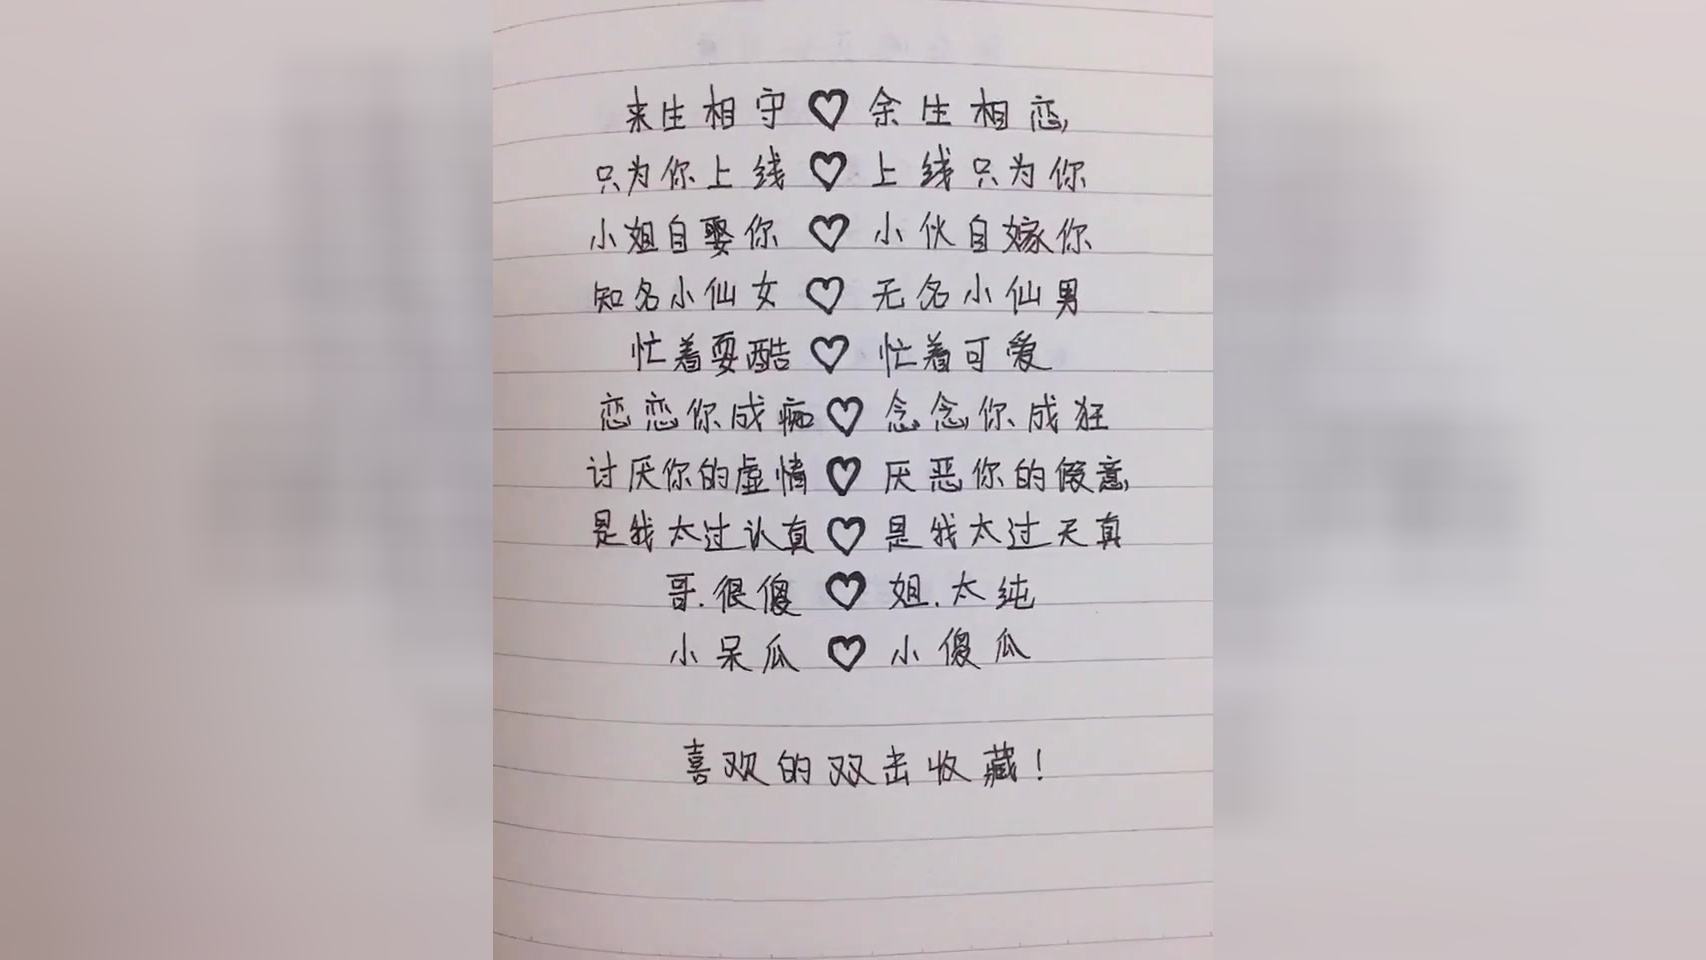 来生相守♡余生相恋
只为你上线♡上线只为你
小姐自娶你♡小伙自嫁你
知名小仙女♡无名小仙男
忙着耍酷♡忙着可爱
恋恋你成痴♡念念你成狂
讨厌你的虚情♡厌恶你的假意
是我太过认真♡是我太过天真
哥.很傻♡姐.太纯
小呆瓜♡小傻瓜
喜欢的双击收藏!